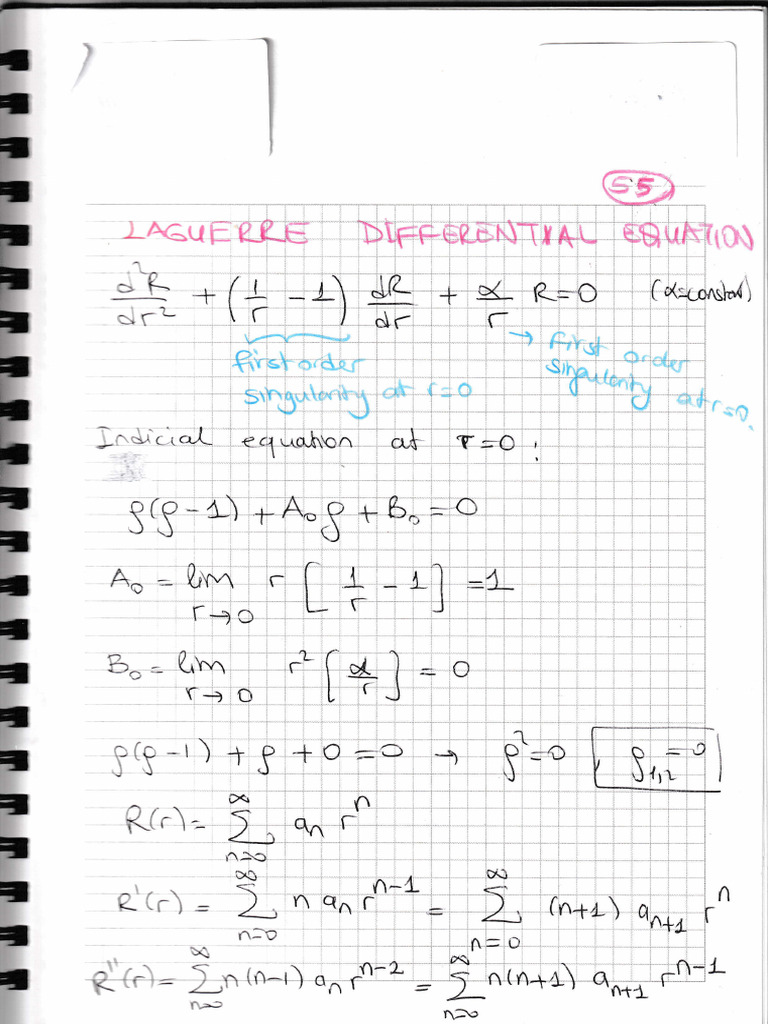 55
LAGUERRE DIFFERENTIAL EQUATION
d²R/dr² + (1/r - 1) dR/dr + α/r R = 0 (α=constant)
first order singularity at r=0
→ first order singularity at r=0.
Indicial equation at r=0 :
ρ(ρ-1) + A₀ρ + B₀ = 0
A₀ = lim r→0 r [1/r - 1] = 1
B₀ = lim r→0 r² [α/r] = 0
ρ(ρ-1) + ρ + 0 = 0 → ρ² = 0 ρ₁,₂ = 0
R(r) = ∑ n=0 ∞ aₙ rⁿ
R'(r) = ∑ n=0 ∞ n aₙ rⁿ⁻¹ = ∑ n=0 ∞ (n+1) aₙ₊₁ rⁿ
R''(r) = ∑ n=0 ∞ n(n-1) aₙ rⁿ⁻² = ∑ n=0 ∞ n(n+1) aₙ₊₁ rⁿ⁻¹